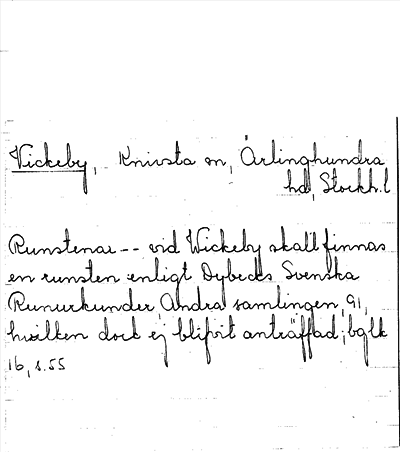 Vickeby, Knivsta sn, Ärlinghundra
hd, Stockh.l
Runstenar -- vid Wickeby skall finnas
en runsten enligt Dybecks Svenska
Runurkunder Andra samlingen, 91,
hvilken dock ej blifvit anträffad;
16, s.55